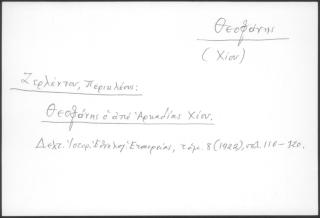 Θεοφάνης
(Χίου)
Ζερλέντου, Περικλέους:
Θεοφάνης ὁ ἀπὸ Ἀρκαδίας Χίου.
Δελτ. Ἱστορ. Ἐθνολογ. Ἑταιρείας, τόμ. 8 (1922), σελ. 110-120.